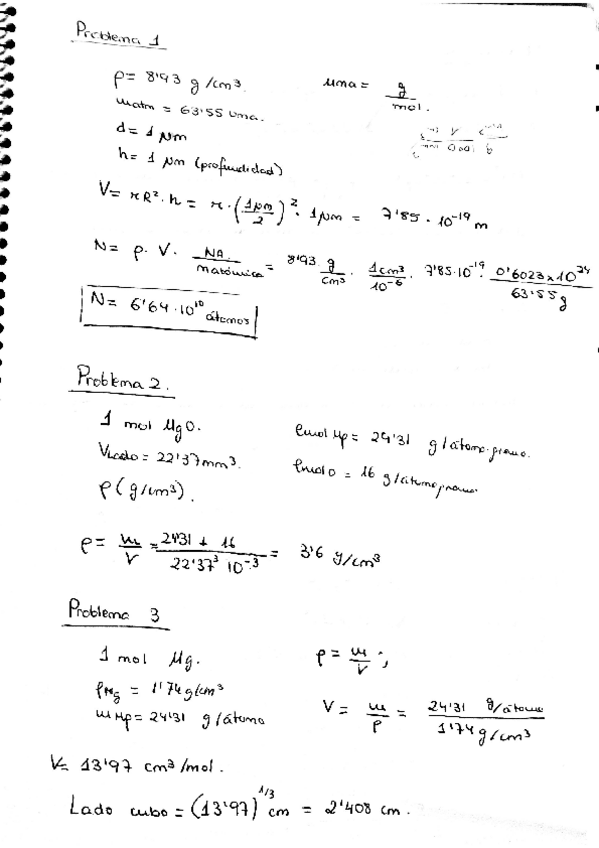 Problema 1
ρ= 8'93 g/cm³. uma = g/mol.
matm = 63'55 uma.
d= 1 μm
h= 1 μm (profundidad)
V= πR²·h = π·(1μm/2)²·1μm = 7'85·10⁻¹⁹ m
N= ρ·V·NA/matómica = 8'93 g/cm³ · 1cm³/10⁻⁶ · 7'85·10⁻¹⁹ · 0'6023x10²⁴/63'55g
N= 6'64·10¹⁰ átomos
Problema 2.
1 mol MgO. = 24'31 g/átomo·gramo.
Vlado= 22'37mm³. = 16 g/átomo gramo
ρ(g/cm³).
ρ= m/V = 24'31 + 16/22'37³ 10⁻³ = 3'6 g/cm³
Problema 3
1 mol Mg. ρ= m/V;
ρMg = 1'74g/cm³
mMg= 24'31 g/átomo V= m/ρ = 24'31 g/átomo/1'74g/cm³
V= 13'97 cm³/mol.
Lado cubo = (13'97)^1/3 cm = 2'408 cm.